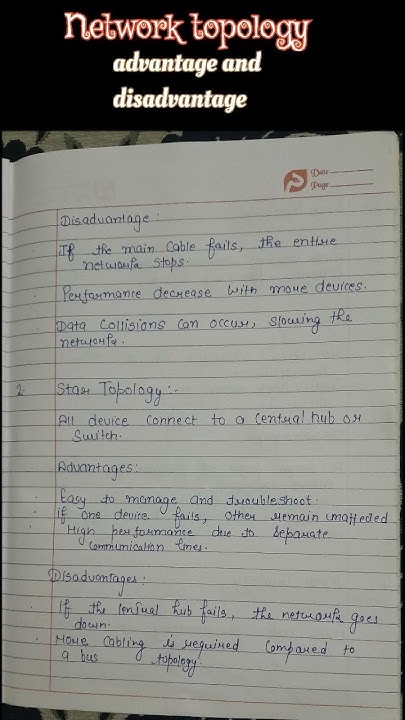 Network topology
advantage and
disadvantage
Date
Page
Disadvantage :
If the main cable fails, the entire
network stops.
Performance decrease with more devices.
Data Collisions can occur, slowing the
network.
2. Star Topology :-
All device connect to a central hub or
Switch.
Advantages:
Easy to manage and troubleshoot.
if one device fails, other remain unaffected
High performance due to separate
communication lines.
Disadvantages :
If the central hub fails, the network goes
down.
More cabling is required compared to
a bus topology.